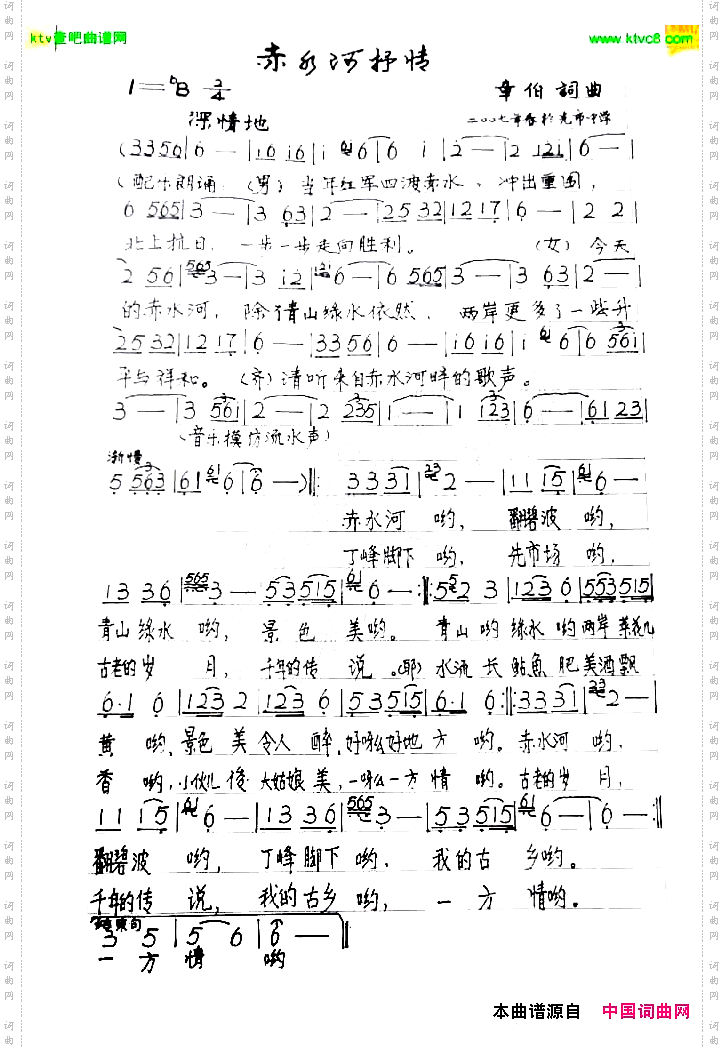 ktv查吧曲谱网
www.ktvc8.com
赤水河抒情
1=ᵇB 2/4
章伯詞曲
深情地
二00七年春於先市中学
(3356|6 —|16 16|1 6|6 1|2 —|2 121|6 —|
(配乐朗诵:(男)当年红军四渡赤水、冲出重围,
6 565|3 —|3 63|2 —|25 32|12 17|6 —|2 2|
北上抗日,一步一步走向胜利。(女)今天
2 56|3 —|3 12|6 —|6 565|3 —|3 63|2 —|
的赤水河,除了青山绿水依然,两岸更多了一些升
25 32|12 17|6 —|33 56|6 —|16 16|1 6|6 561|
平与祥和。(齐)请听来自赤水河畔的歌声。
3 —|3 561|2 —|2 235|1 —|1 123|6 —|61 23|
(音乐模仿流水声)
渐慢
5 563|61 6|6 —)‖: 33 31|2 —|11 15|6 —|
赤水河 哟, 翻碧波 哟,
丁峰脚下 哟, 先市场 哟,
13 36|3 —|53 515|6 —:‖: 5 2 3|123 6|553515|
青山绿水 哟, 景色 美哟。 青山哟绿水哟两岸菜花儿
古老的岁 月, 千年的传 说。(耶) 水流长鲇鱼肥美酒飘
6·1 6|123 2|123 6|53 515|6·1 6:‖: 33 31|2 —|
黄 哟,景色美令人醉,好吆好地方哟。赤水河 哟,
香 哟,小伙儿俊大姑娘美,一吆一方情哟。古老的岁 月,
11 15|6 —|13 36|3 —|53 515|6 —|6 —:‖
翻碧波 哟, 丁峰脚下 哟, 我的古 乡哟。
千年的传 说, 我的古乡 哟, 一 方 情哟。
结束句
3 5|5 6|6 —‖
一 方 情 哟
本曲谱源自 中国词曲网